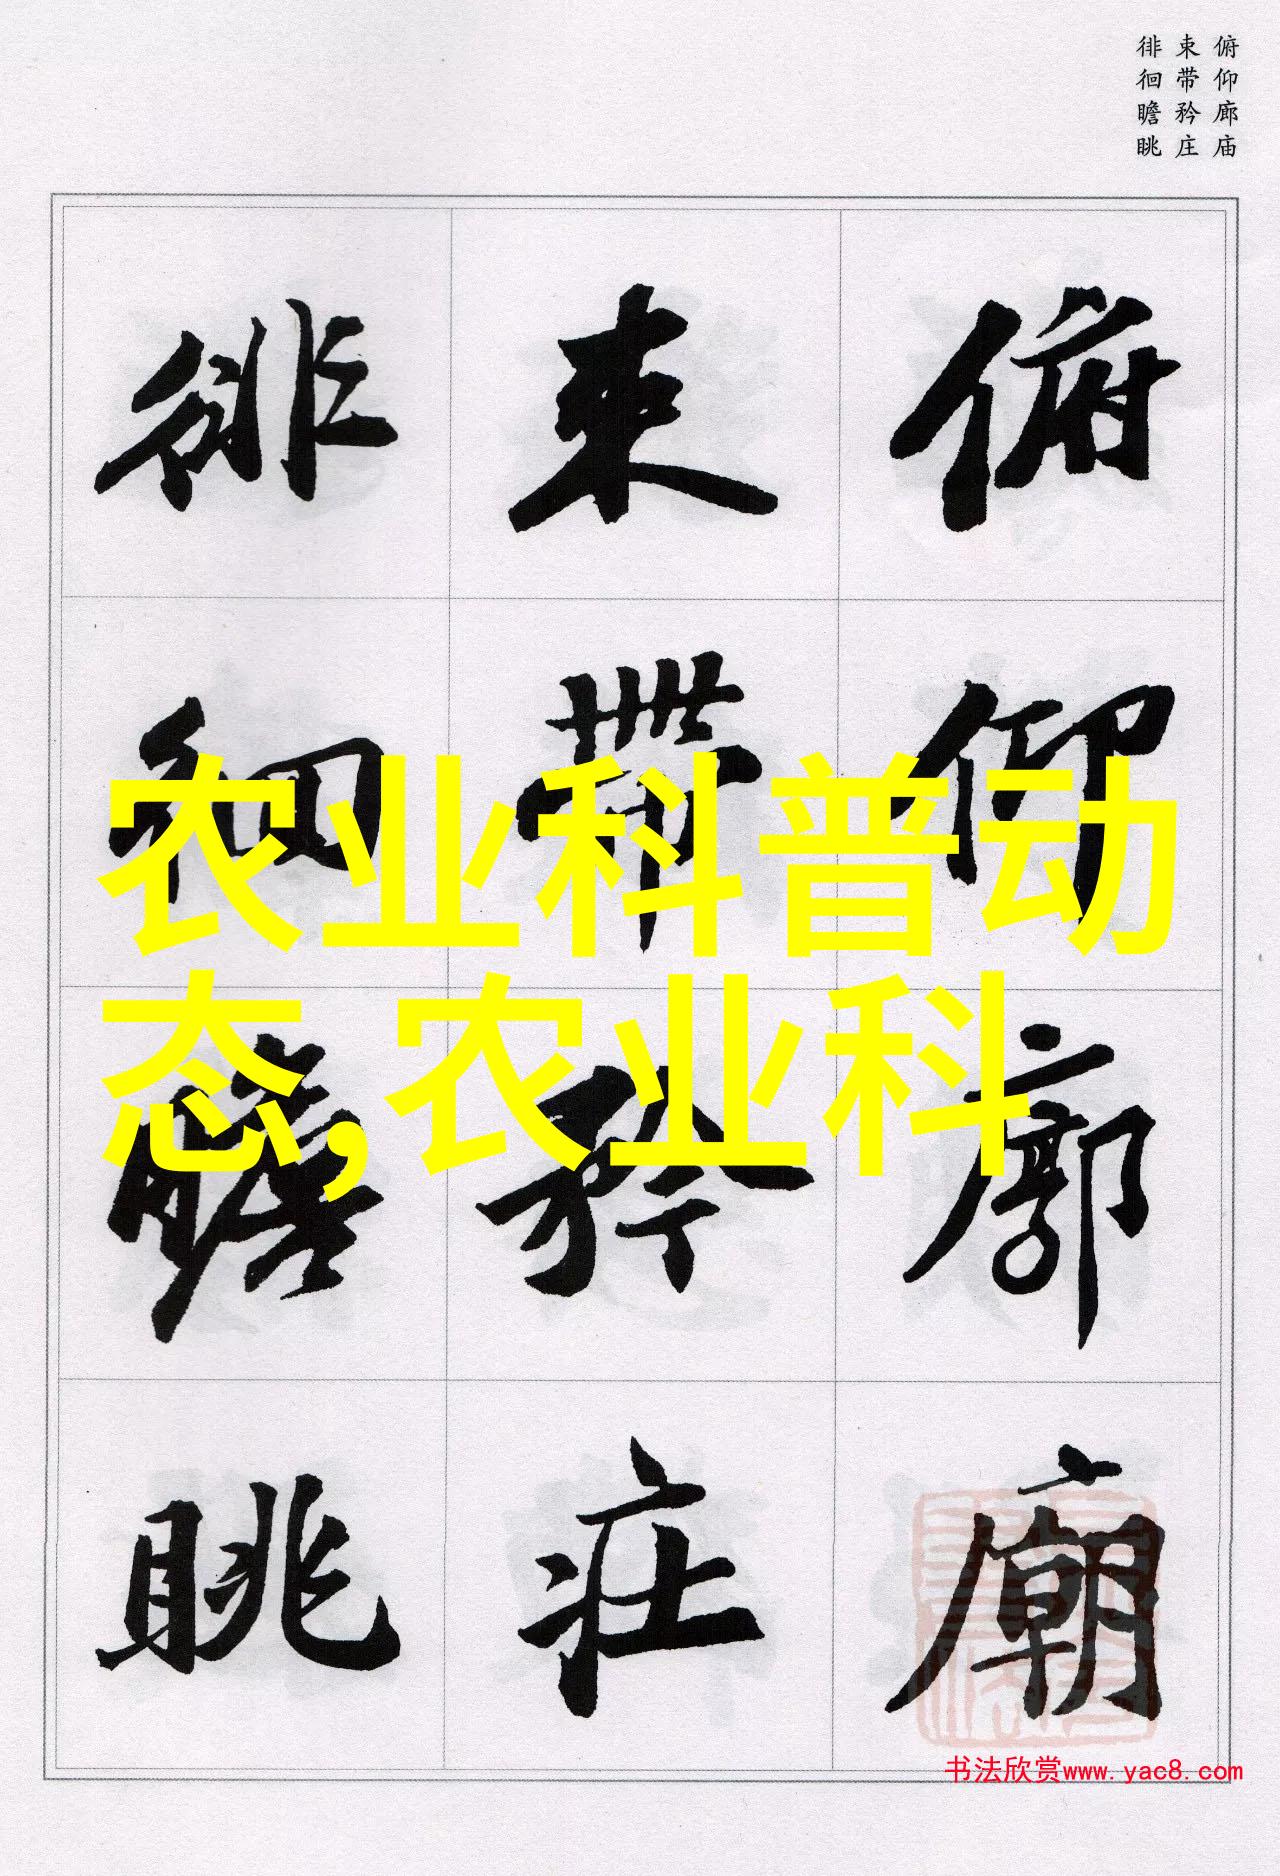 俯仰廊庙
束带矜庄
徘徊瞻眺
俯仰廊廟
束帶矜莊
徘徊瞻眺
农业科普动
态,农业科
书法欣赏www.yac8.com